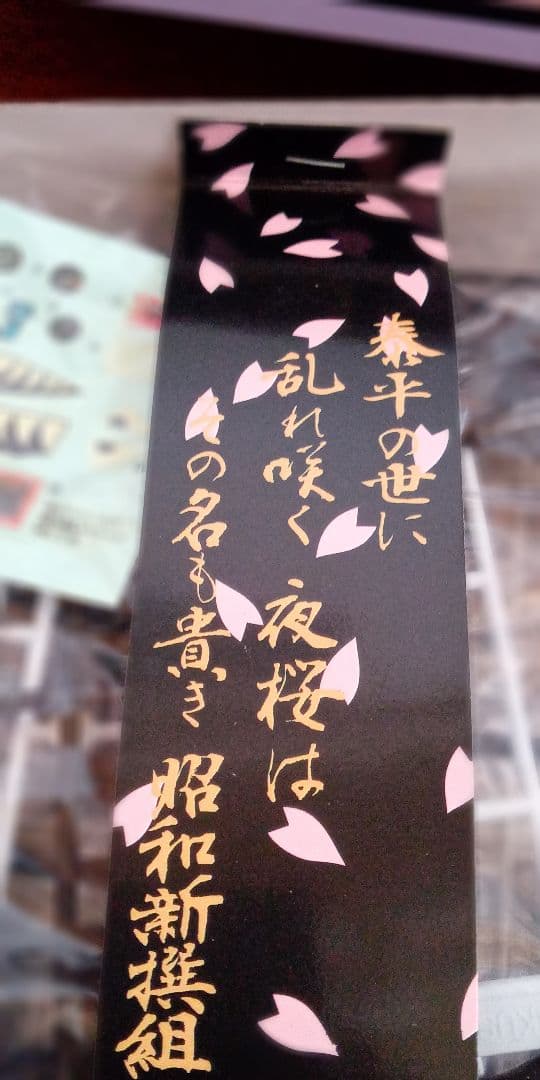 泰平の世に
乱れ咲く 夜桜は
その名も貴き 昭和新撰組